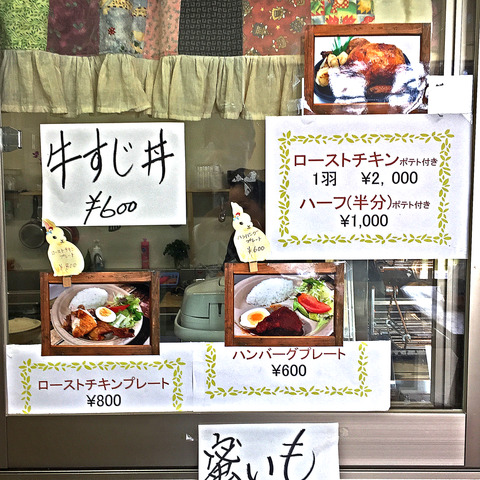 牛すじ丼
¥600
ローストチキンポテト付き
1羽 ¥2,000
ハーフ(半分)ポテト付き
¥1,000
ハンバーグ
プレート
¥600
ローストチキンプレート
¥800
ハンバーグプレート
¥600
蜜いも